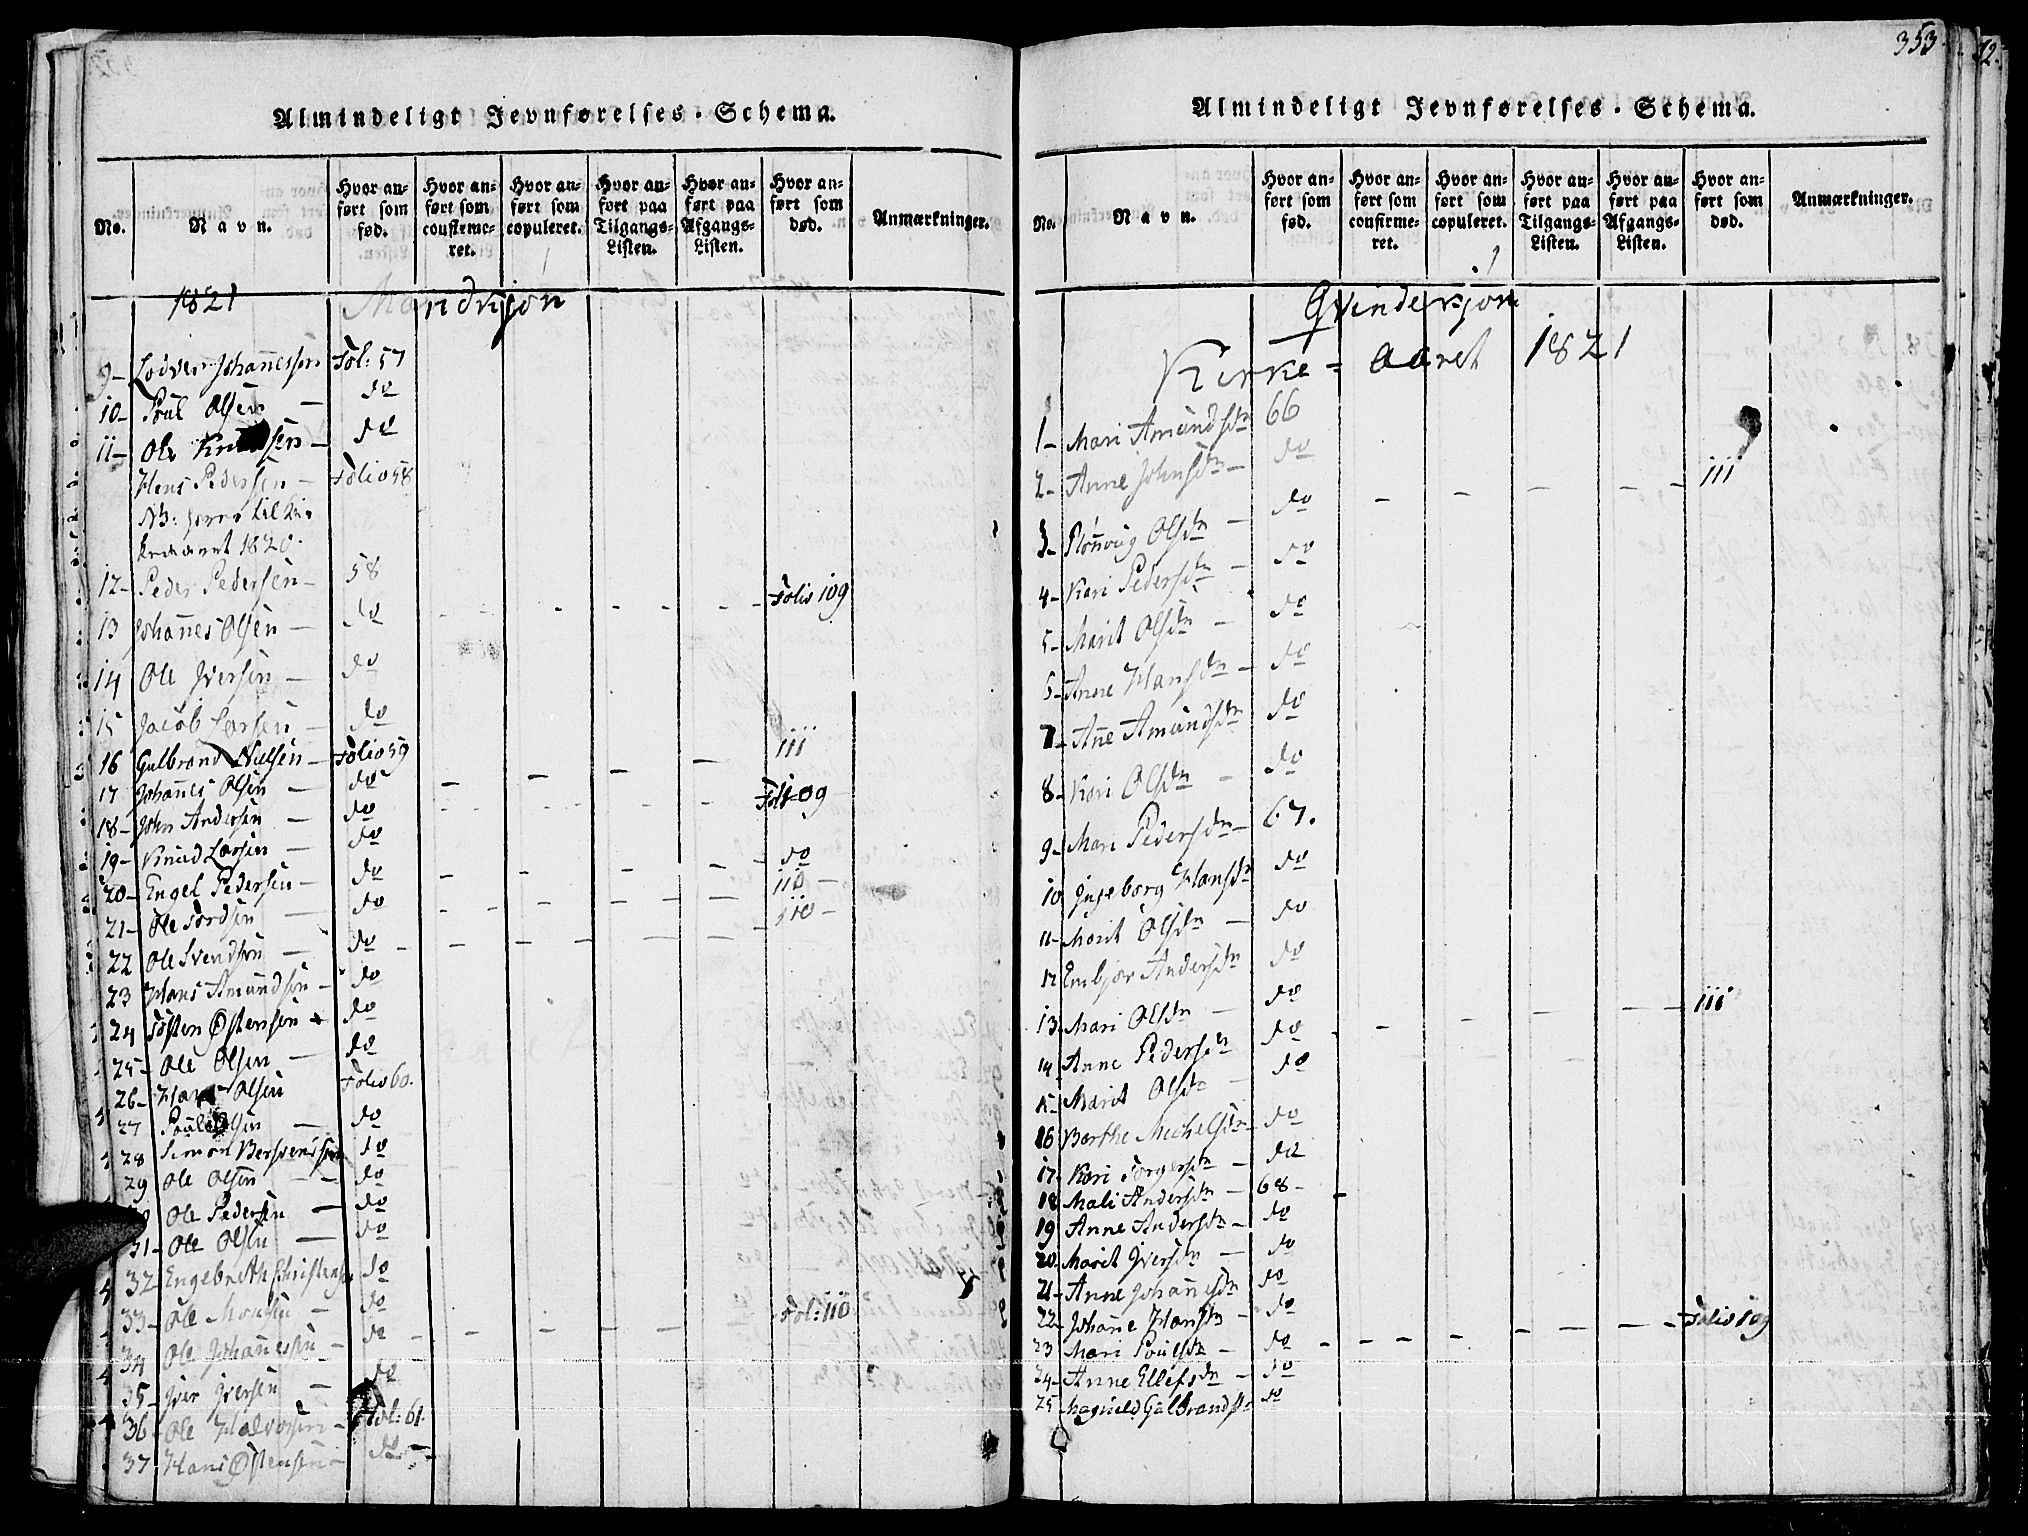 Almindeligt Jevnførelses-Schema.
No.
Navn.
Hvor anført som fød.
Hvor anført som confirmeret.
Hvor anført som copuleret.
Hvor anført paa Tilgangs-Listen.
Hvor anført paa Afgangs-Listen.
Hvor anført som død.
Anmærkninger.
1821 Mandkjøn
9- Johannessen Fol: 57
10- Poul Olsen - do
11- Ole do
Hans Pedersen - Folio 58
NB: til
1820.
12- Peder Pedersen - 58
13 Johannes Olsen - do - - - - - Folio 109
14 Ole Iversen - do
15 Jacob Larsen - do
16 Gulbrand Nielsen - Folio 59
17 Johannes Olsen - do - - - - 111
18- John Andersen - do - - - - - Fol: 109
19- Knud Larsen - do
20- Engel Pedersen - do - - - - - do
21- Ole Tordsen - do - - - - - 110 -
22 Ole Svendsen - do - - - - - - 110 -
23 Hans Amundsen - do
24 Tosten Østensen do
25- Ole Olsen - do
26- Hans Olsen Folio 60.
27 Poul Olsen - do
28 Simon do
29 Ole Olsen - - do
Ole Pedersen - do
31- Ole Olsen - do
32- Engebreth Christensen do
33- Ole Monsen - do
34 Ole Johannessen - do - - - - - Fol: 110
35- Iver Iversen - do
36- Ole Halvorsen - Fol: 61.
37 Hans Østensen - do -
353
Almindeligt Jevnførelses-Schema.
No.
Navn.
Hvor anført som fød.
Hvor anført som confirmeret.
Hvor anført som copuleret.
Hvor anført paa Tilgangs-Listen.
Hvor anført paa Afgangs-Listen.
Hvor anført som død.
Anmærkninger.
Qvindekjøn
Kirke-Aaret 1821
1- Mari Amundsdn 66
2- Anne Johnsdn - do
3- Rønnoug Olsdn - do - - - - - 111
4- Kari Pedersdn - do
5- Marit Olsdn - do
6- Anne Hansdn - do
7- Anne Amundsdn do
8- Kari Olsdn - do
9- Mari Pedersdn - 67.
10 Ingeborg Hansdn do
11- Marit Olsdn - do
12 Embjør Andersdn do
13- Mari Olsdn - do
14 Anne Pedersdn do - - - - - 111
15- Marit Olsdn - do
16 Berthe Michelsdn - do
17- Kari Torgersdn - do
18 Mali Andersdn - 68 -
19 Anne Andersdn - do
20. Marit Iversdn - do
21- Anne Johannesdn do
22- Johanne Hansdn - do
23 Mari Poulsdn - do - - - - - - Folio 109
24- Anne Ellefsdn - do
25 Magnild Gulbrandsdn do